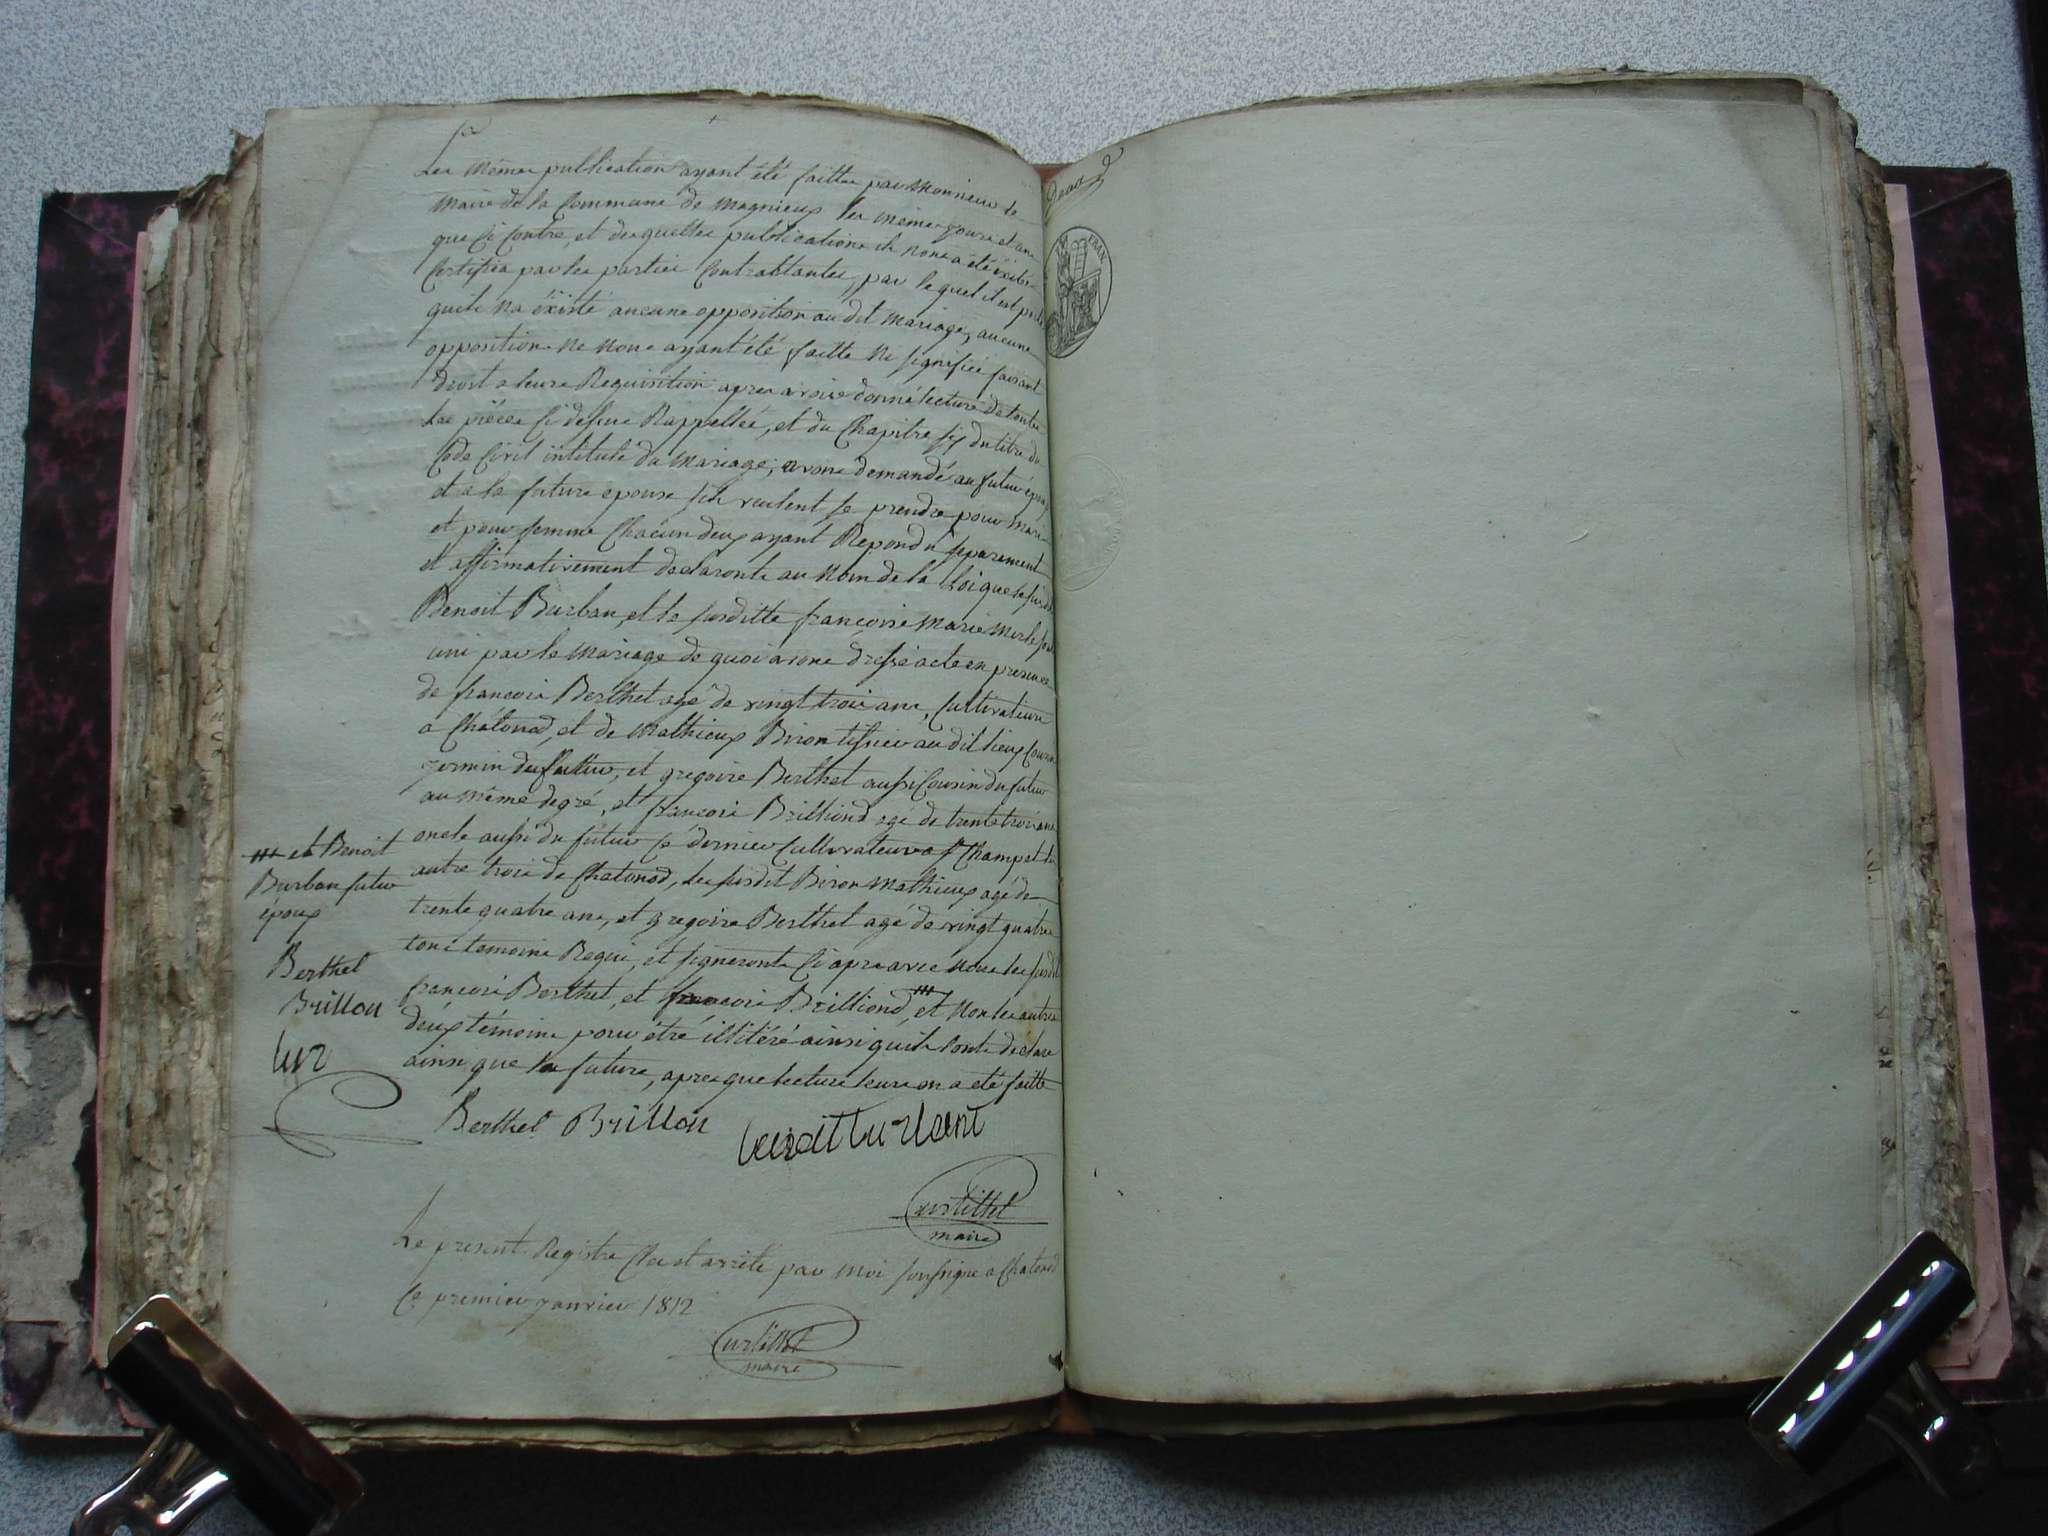 Les mêmes publication ayant été faittes par Monsieur le
Maire de la Commune de Magnieux les mêmes jours et an
que Ci Contre, et desquelles publications il nous a été exibé
Certifica par les parties Contrattantes, par lequel il est porté
quil na éxisté aucune opposition au dit Mariage, aucune
opposition ne nous ayant été faitte ni signifiée faisant
droit a leurs Requisition apres avoir donné lecture de toutes
les piéces Ci dessus Rappellée, et du Chapitre six du titre du
Code Civil intitulé du Mariage, avons demandé au futur époux
et a la future epouse s'ils veulent se prendre pour mari
et pour femme Chacun deux ayant Repondu séparement
et affirmativement declarons au Nom de la Loi que le susdit
Benoit Burban, et la susditte françoise Marie Merle sont
uni par le Mariage de quoi avons dressé acte en presence
de françois Berthet agé de vingt trois ans, Cultivateur
a Châtonod, et de Mathieux Biron tisseur au dit lieux Cousin
germin du futur, et gregoire Berthet aussi Cousin du futur
au même degré, et françois Brilliond agé de trente trois ans
oncle aussi du futur Ce dernier Cultivateur a Champet les
autre trois de Chatonod, le susdit Biron Mathieux agé de
trente quatre ans, et gregoire Berthet agé de vingt quatre
tous temoins Requi, et signeronts Ci apres avec nous les susdit
françois Berthet, et françois Brilliond, et Non les autres
deux témoins pour être illitéré ainsi quils l'onts déclaré
ainsi que la future, apres que lecture leurs en a été faitte
et Benoit
Burban futur
époux
Berthet
Brillon
Berthet Brillon
maire
Le présent Registre Clos et arrêté par moi soussigné a Chatonod
Ce premier janvier 1812
maire
FRAN